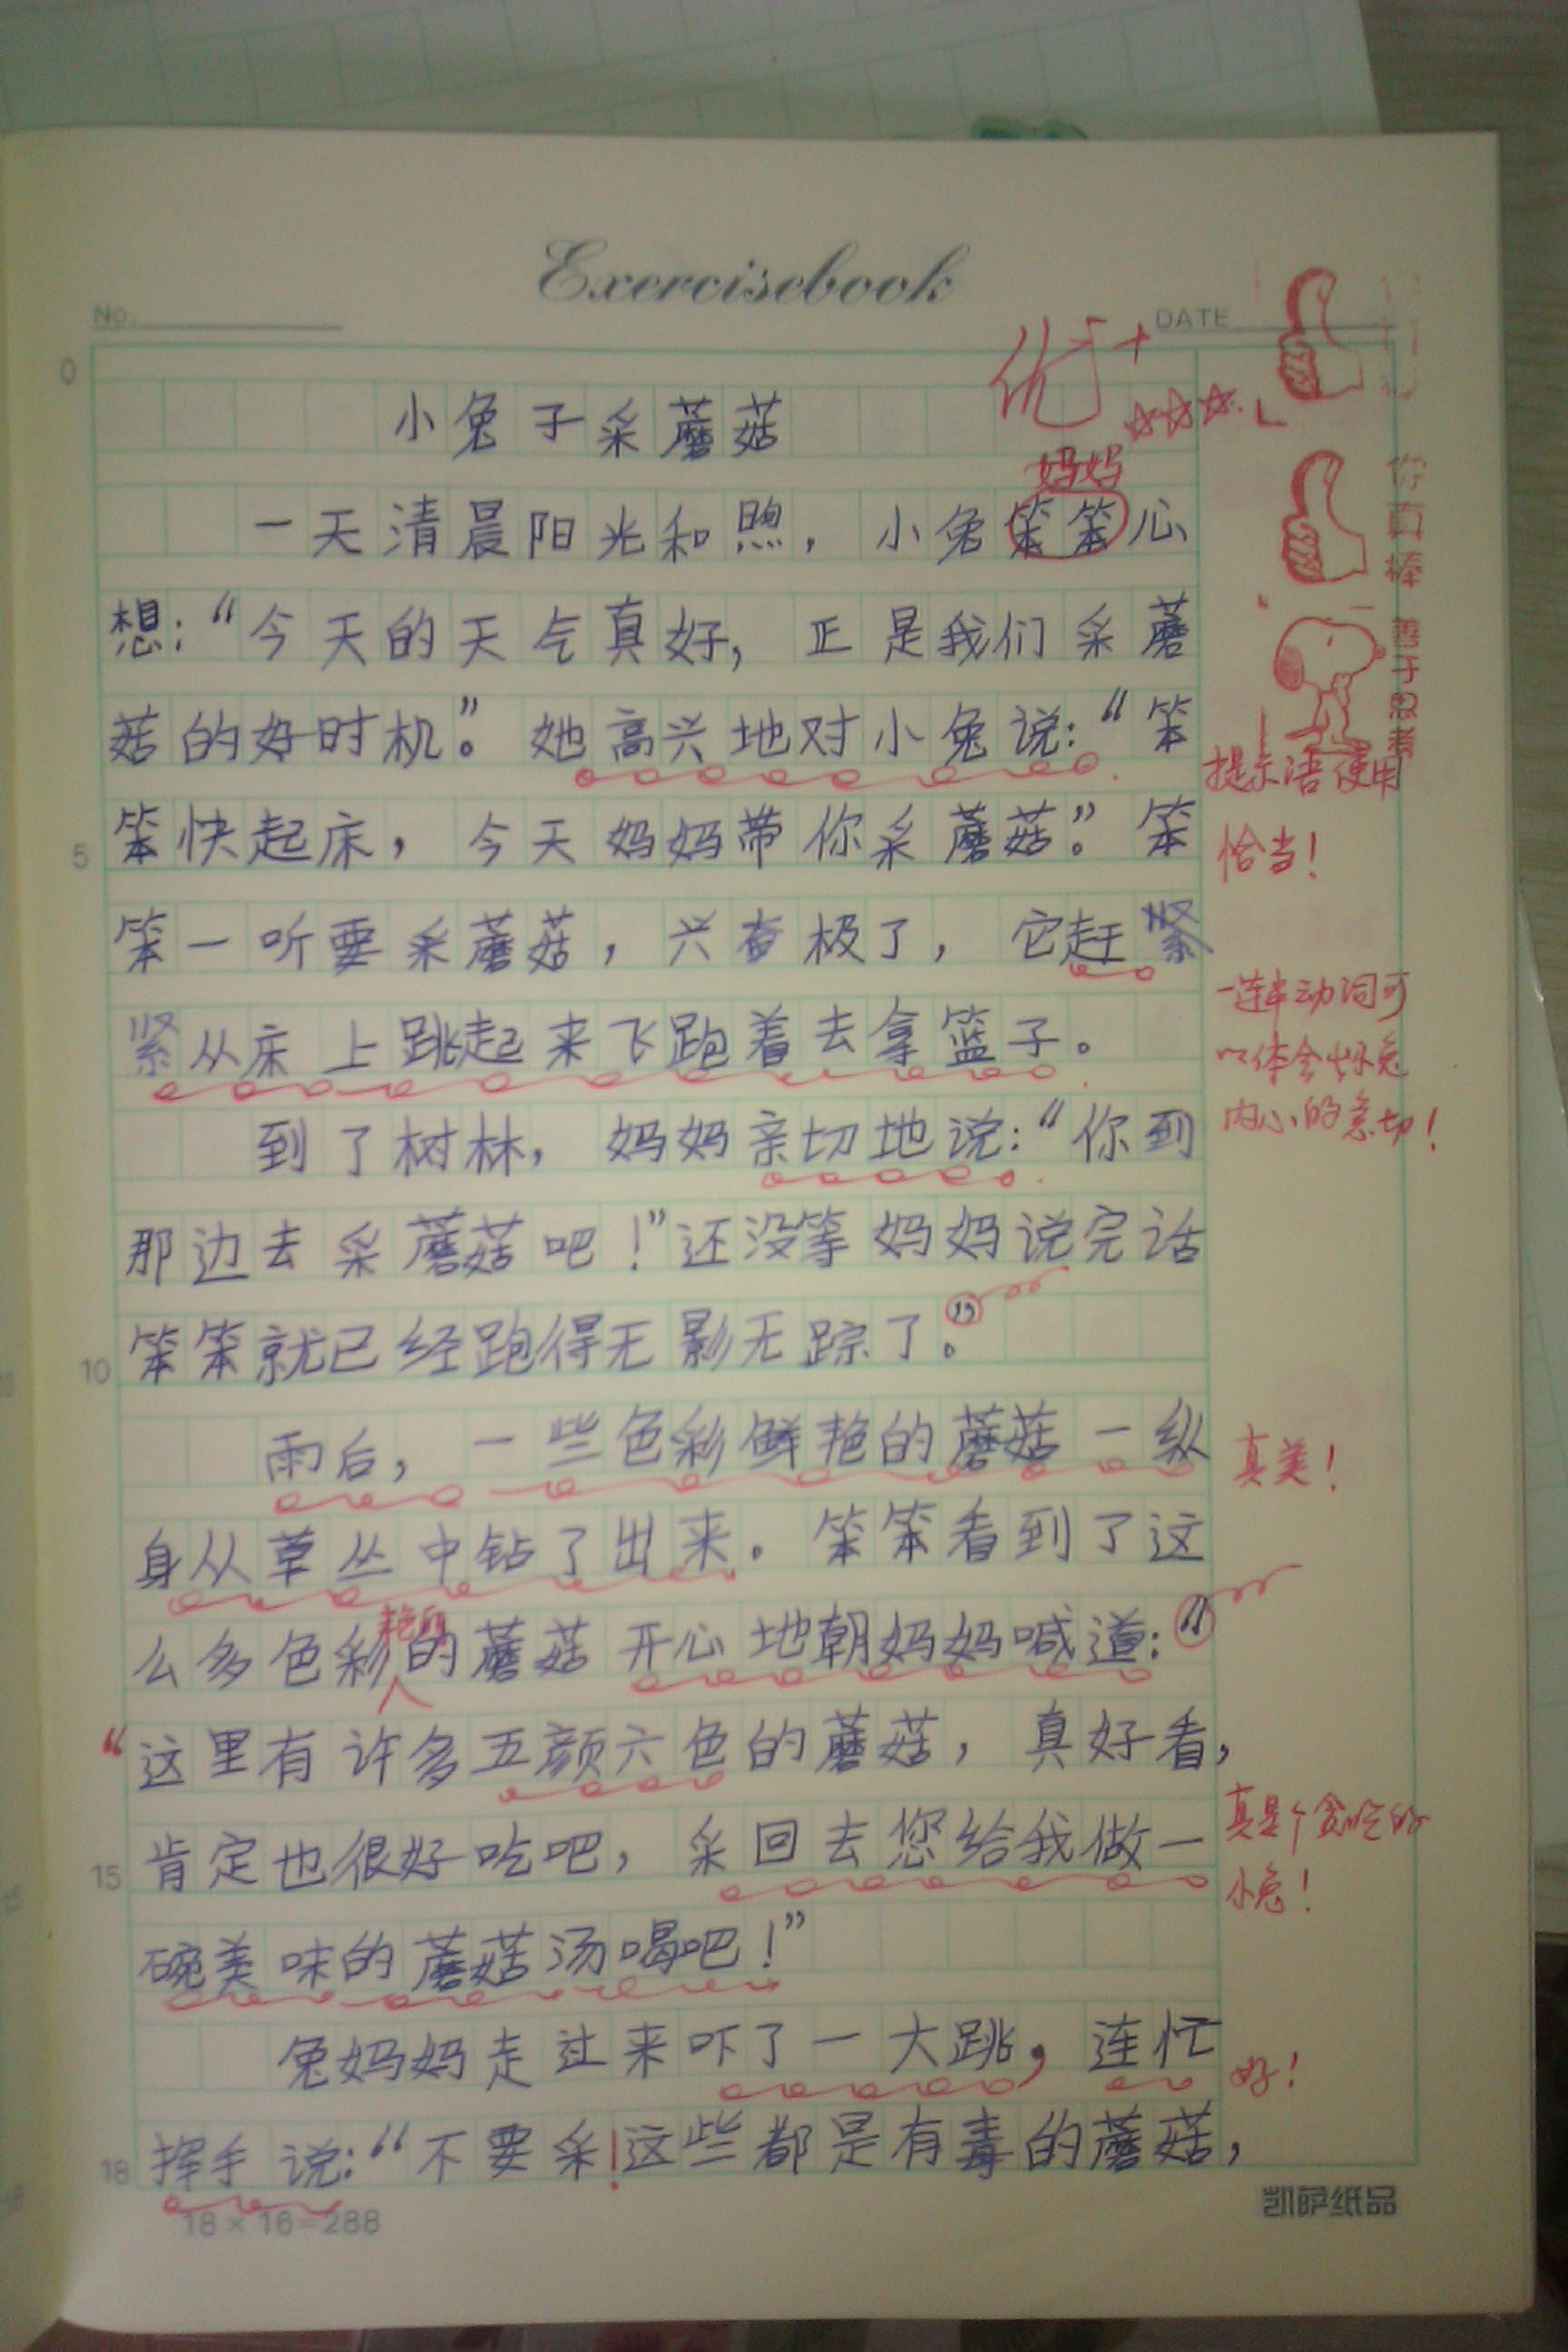 Exercisebook
No.
DATE
优+
0
小兔子采蘑菇
妈妈
一天清晨阳光和煦，小兔笨笨心
你真棒
想：“今天的天气真好，正是我们采蘑
善于思考
菇的好时机”。她高兴地对小兔说：“笨
提示语使用
5
笨快起床，今天妈妈带你采蘑菇”。笨
恰当！
笨一听要采蘑菇，兴奋极了，它赶紧
一连串动词可
紧从床上跳起来飞跑着去拿篮子。
以体会出小兔
到了树林，妈妈亲切地说：“你到
内心的急切！
那边去采蘑菇吧！”还没等妈妈说完话
10
笨笨就已经跑得无影无踪了。”
雨后，一些色彩鲜艳的蘑菇一纵
真美！
身从草丛中钻了出来。笨笨看到了这
艳丽
么多色彩的蘑菇开心地朝妈妈喊道：“
“这里有许多五颜六色的蘑菇，真好看，
15
肯定也很好吃吧，采回去您给我做一
真是个贪吃的
小兔！
碗美味的蘑菇汤喝吧！”
兔妈妈走过来吓了一大跳，连忙
好！
18
挥手说：“不要采！这些都是有毒的蘑菇，
18×16=288
凯萨纸品